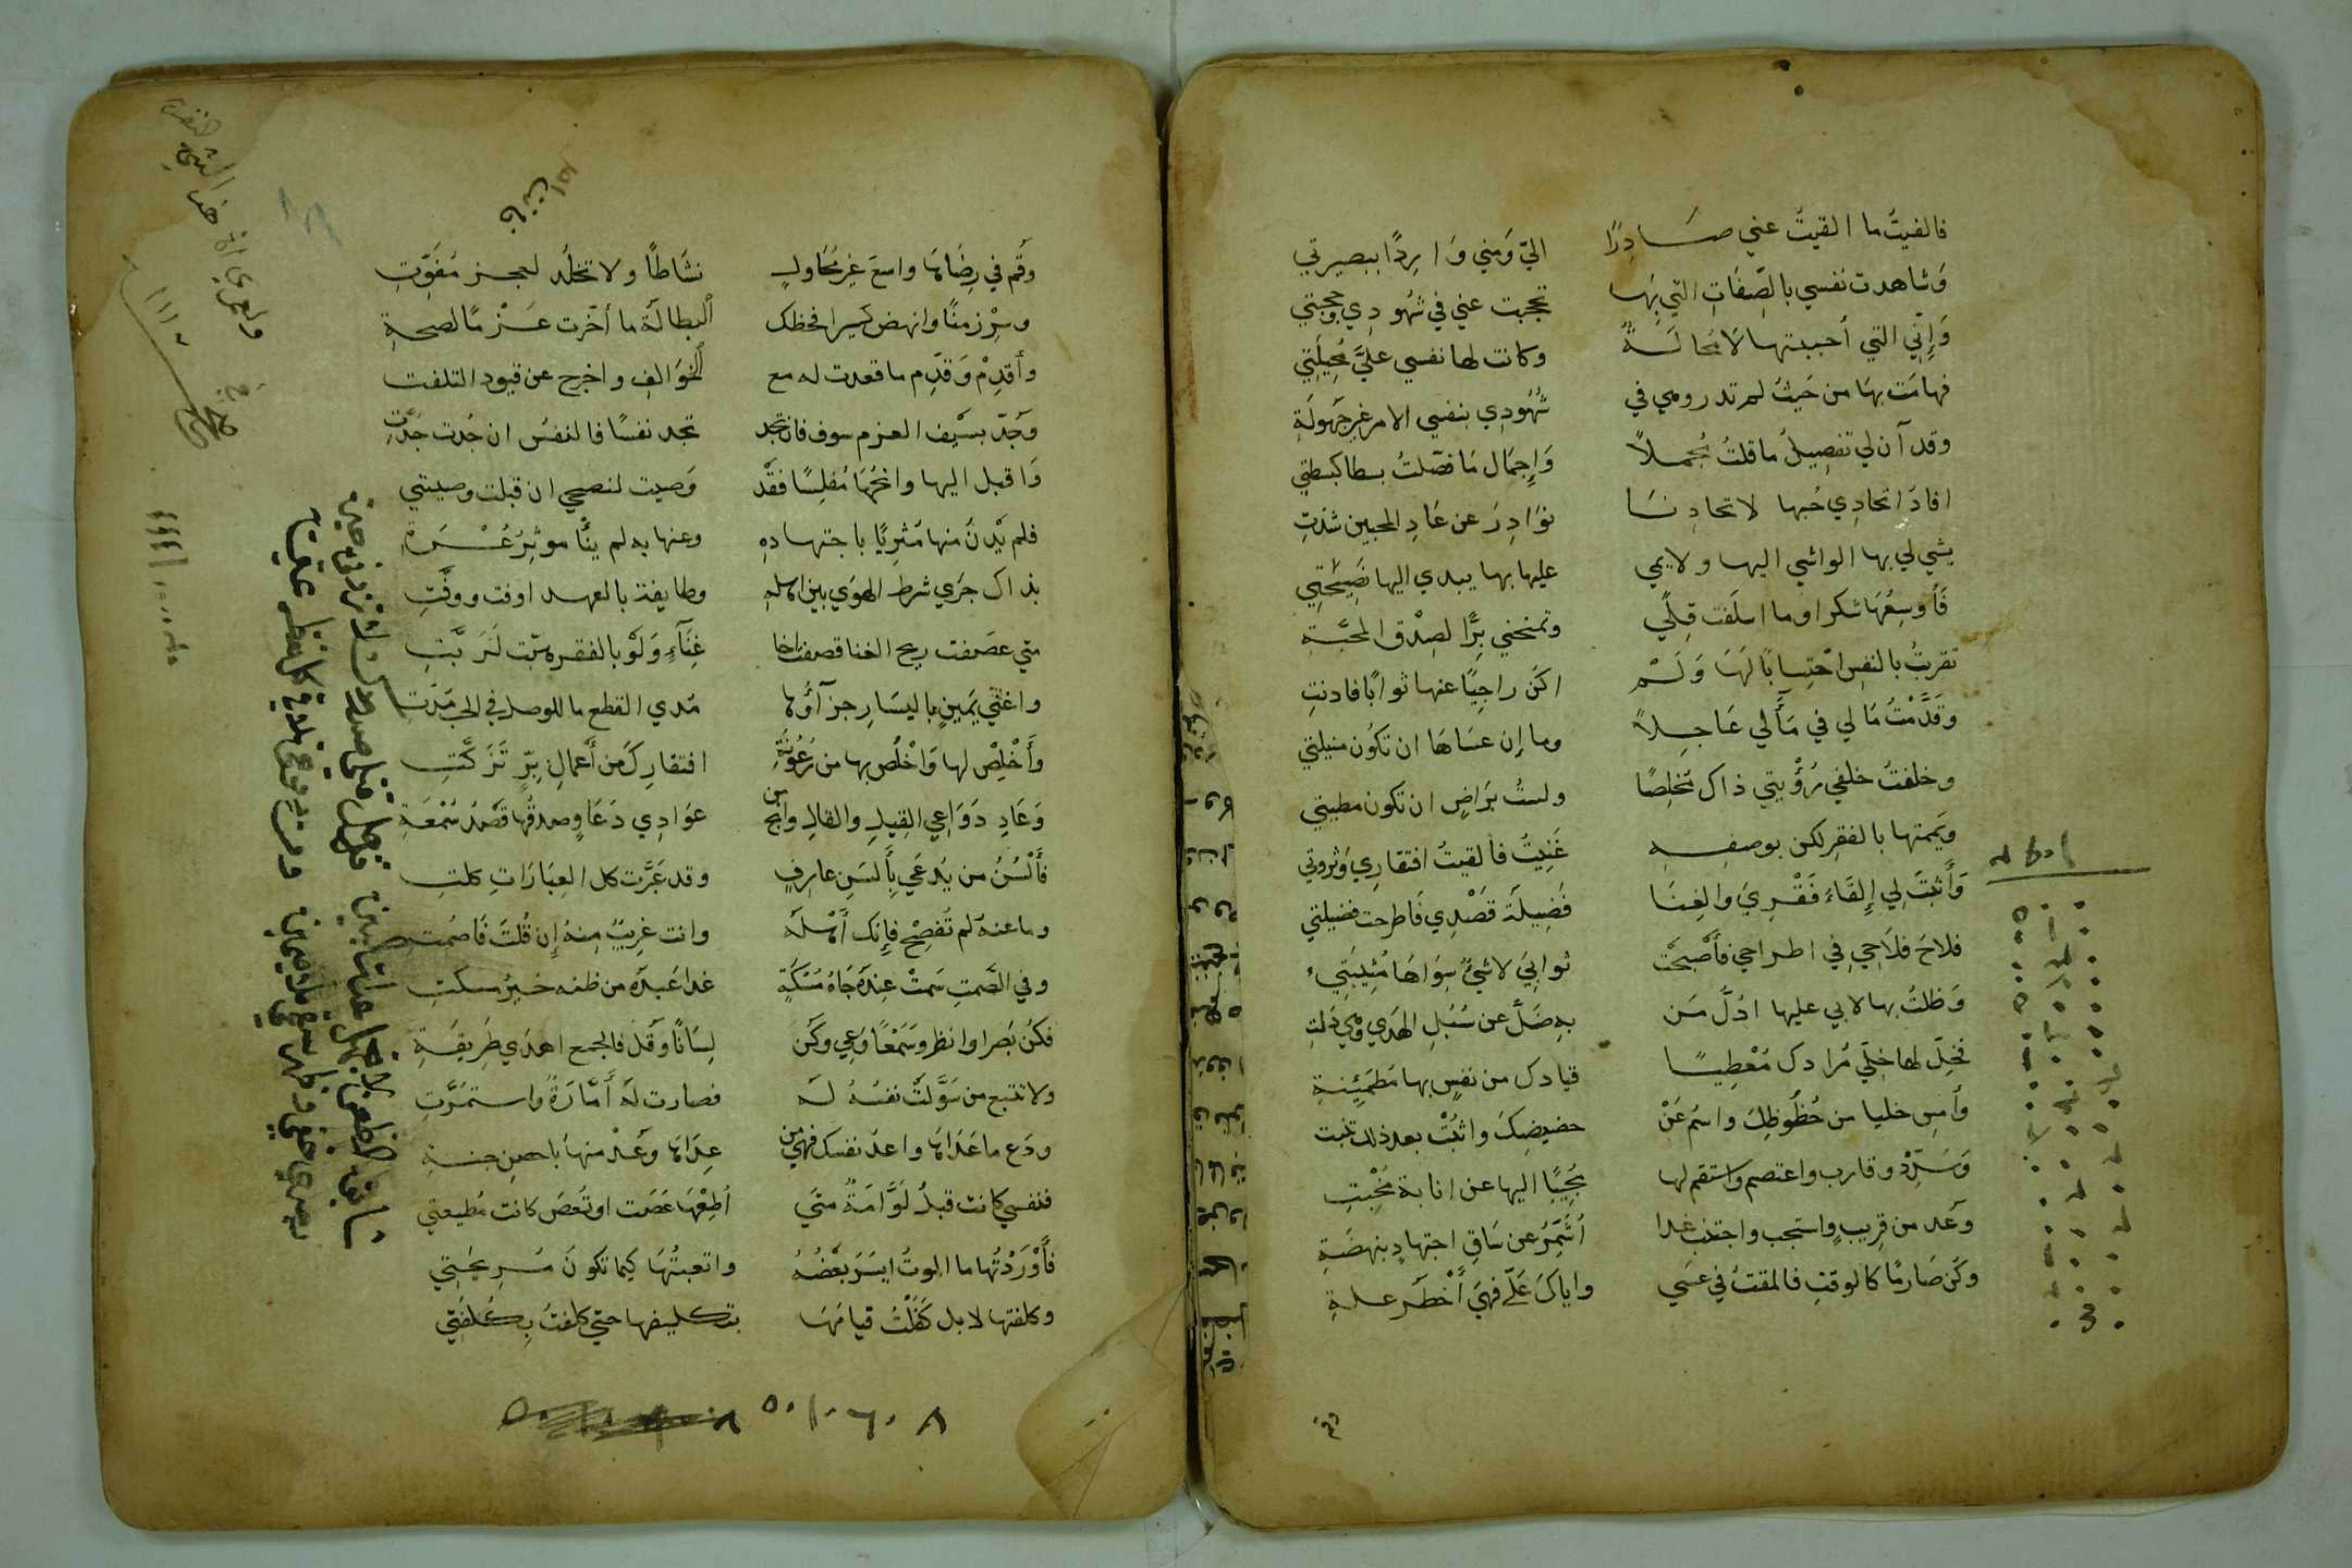 فالفيتُ ما القيتُ عني صَادِرًا اليّ وَمِني وَارِدًا ببصيرتي
وَشاهدت نفسي بالصِّفَاتِ التي بهَا تحجبت عني في شُهودِي وحجبتي
وَإِنِّي التي أحببتها لَا مُحَالَةً وكانت لها نفسي عليَّ مُحِيلَتِي
فهامَت بهَا من حَيثُ لم تدر وهي في شُهُودِي بنفسي الامر غير جَهُولَةِ
وقد آن لي تفصِيلُ ما قلتُ مُجملاً وَإِجمَال مَا فصّلتُ بسطا كبسطتي
افادَ اتحادِي حُبها لاتحادِنَا نوَادِرَ عن عَادِ المحبين شذتِ
يشي لي بها الواشي اليها ولايمي عليها بها يبدي اليها نصِيحَتِي
فَأوسِعُهَا شكرا وما اسلَفت قِلًي وتمنحني بِرًّا لصِدْق المحبَّةِ
تقربتُ بالنفسِ احْتِسابًا لهَا وَلَمْ اكن راجِيًا عنها ثوابًا فادنتِ
وَقَدَّمْتُ مَالي في مَآلي عَاجِلاً وما إن عسَاهَا ان تكُون منيلتي
وخلفتُ خلفي رُؤْيتي ذاك مُخلِصًا ولستُ برَاضٍ ان تكون مطيتي
ويَممتها بالفقرِ لكن بوصفِهِ غَنِيتُ فالقيتُ افتقارِي وَثروتي
وَأَثبَتَ لِي إِلقَاءُ فَقْرِيَ والغِنَا فَضِيلَة قَصْدِي فَاطرحت فضيلتي
فلاحَ فلَاحِي فِي اطراحِي فأَصْبَحَتْ ثوابِيَ لا شيءٌ سِوَاهَا مُثِيبَتِي
وَظلتُ بها لا بي عليها ادُلُّ مَن بهِ ضَلَّ عن سُبُلِ الهدَي وهي دَلتِ
فخلِّ لها خِلّي مُرادك مُعْطِيًا قيادك من نفسٍ بها مُطمَئِنةِ
وأمسِ خليا من حُظُوظِكَ واسْمُ عَنْ حضيضِكَ واثبُتْ بعد ذلك تنبت
وَسَدِّدْ وقارب واعتصم واستقم لها مُجِيبًا اليها عن انابة مُخْبِتِ
وعُد من قرِيبٍ واستجب واجتنب غدا أُشَمِّرُ عن سَاقِ اجتهادٍ بنهضَةِ
وكُن صَارمًا كالوقتِ فالمقتُ في عسَي واياكَ عَلَّ فهيَ أَخْطَر علةِ
وقُم في رِضَاهَا واسعَ غير مُحَاولٍ نشَاطًا ولا تخلُد لعجز مُفَوِّتِ
وسِرْ زمنًا وانهض كسِيرا فحظك ألبطالَةُ ما أخّرت عَزْمًا لصحةِ
وأقدِمْ وَقدِّم ما قعدت له مع ألخوَالِفِ واخرج عن قيود التلفت
وَجُدّ بسَيْف العزم سوف فان تجُد تجد نفسًا فالنفسُ ان جُدت جَدّتِ
وَاقبل اليها وانحُهَا مُفلِسًا فقَدْ وَصيت لنصحي ان قبلت وصيتي
فلم يَدْنُ منها مُثرِيًا باجتهادِهِ وعنها به لم ينْأ موثِرُ عُسْرَةِ
بذاك جَرَي شرط الهوَي بين اهلهِ وطايفة بالعهد اوفت ووفّتِ
متي عصَفت ريح الغنا قصفت اخا غِنَآءٍ وَلَوْ بالفقر هبّت لَرَبَّتِ
واغني يَمِينٍ باليسَارِ جزَآؤُهَا مَدي القطع ما للوصل في الحب مَدّت
وَأَخْلِصْ لها وَاخْلُص بها من رُعُونَةِ افتقارِكَ من أعمَالِ برٍّ تَزَكَّتِ
وَعَادِ دَوَاعِي القِيلِ والقالِ وانجُ من عَوَادِي دَعَاوٍ صدقُها قَصْدُ سُمْعَةِ
فأَلسُنُ من يُدعَي بِأَلسَنِ عارفٍ وقد عَبَّرت كل العِبَارَاتِ كلتِ
وما عنهُ لم تُفصِحْ فإِنك أَهْلهُ وانت غرِيبٌ مِنهُ إِن قُلتَ فَاصْمُت
وفي الصَّمتِ سَمتٌ عِندَهُ جَاهُ مُسْكَةٍ غدا عَبدَهُ من ظنه خيرُ مسكتِ
فكُن بَصَرا وانظر وَسَمْعًا وَعِي وكُن لِسَانًا وَقُل فالجمع اهدَي طَرِيقَةِ
ولا تتبع من سَوَّلتْ نفسُهُ لَهُ فصارت لهُ أَمَّارَةً واستمَرَّتِ
ودَع ما عَدَاهَا واعدُ نفسك فهي من عِدَاهَا وعُذ منها باحصنِ جنةِ
فنفسي كانت قبلُ لَوَّامَةً متَي أُطِعْهَا عَصَت او تُعصَ كانت مُطيعتي
فأَوْرَدْتُها ما الموتُ ايسَرُ بَعْضُهُ واتعبتُها كيما تكونَ مُرِيحَتِي
وكلفتها لا بل كَفَلْتُ قيامَهَا بتكليفها حتي كلفتُ بِكُلفَتِي
٥٠١٠٦٠٨